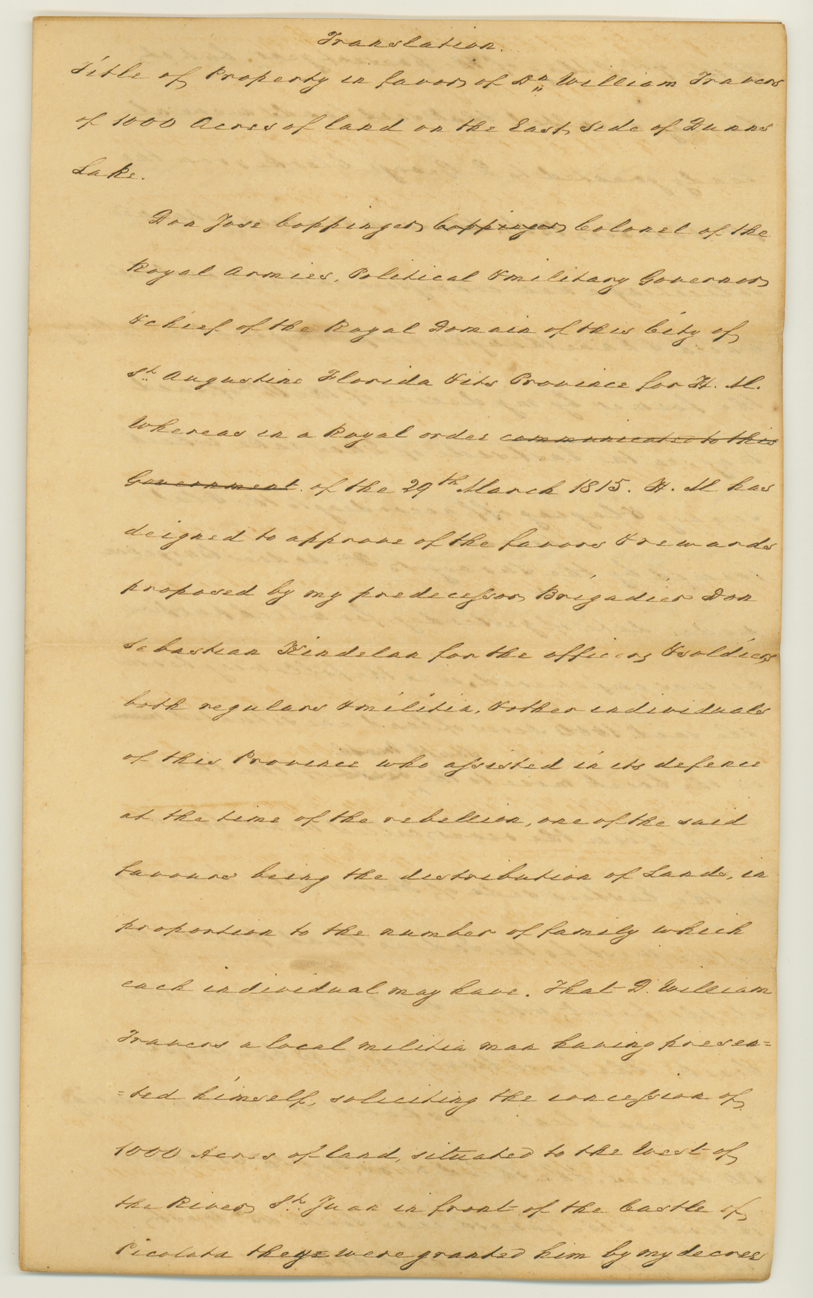 Translation.
Title of Property in favor of Dn. William Travers
of 1000 Acres of land on the East side of Dunns
Lake.
Don Jose Coppinger Coppinger Colonel of the
Royal Armies, Political & military Governor
& chief of the Royal Domain of this City of
St. Augustine Florida & its Province for H. M.
Whereas in a Royal order communicated to this
Government of the 29th March 1815. H. M has
deigned to approve of the favors & rewards
proposed by my predecessor Brigadier Don
Sebastian Kindelan for the officers & soldiers
both regulars & militia, & other individuals
of this Province who assisted in its defence
at the time of the rebellion, one of the said
favours being the distribution of Lands, in
proportion to the number of family which
each individual may have. That D. William
Travers a local militia man having presen=
=ted himself, soliciting the concession of
1000 Acres of land, situated to the West of
the River St. Juan in front of the Castle of
Picolata they were granted him by my decree